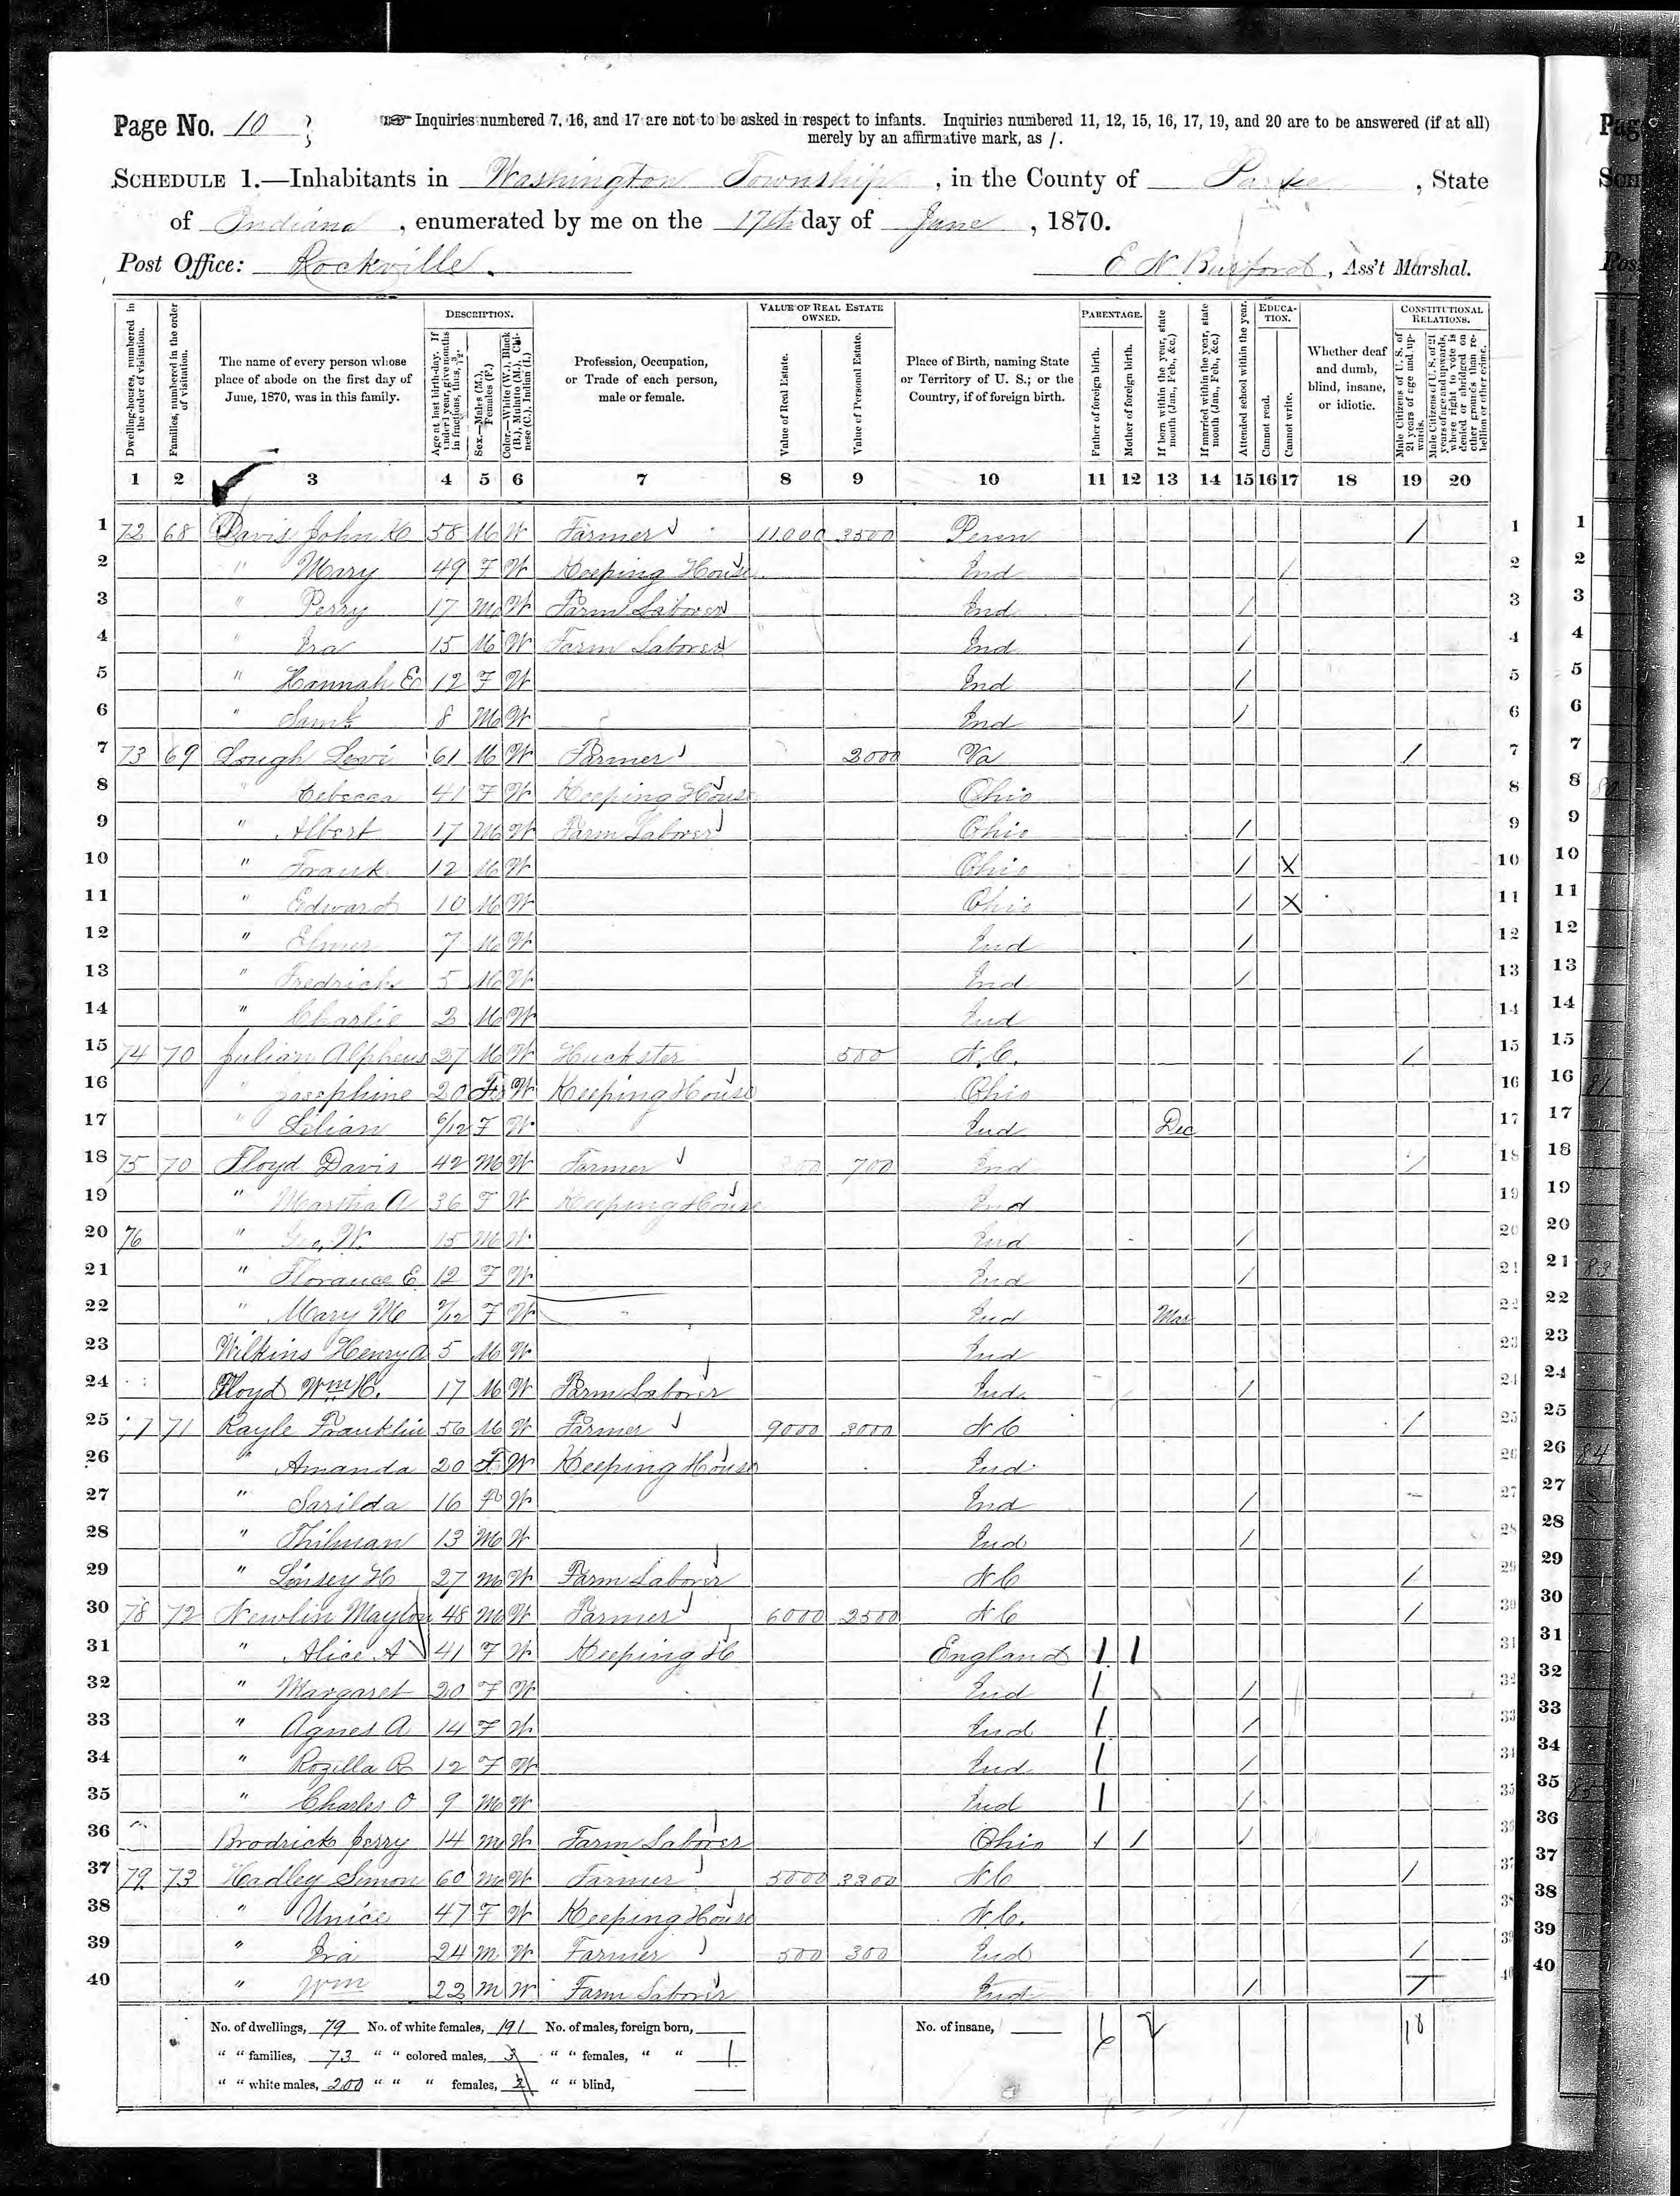 Page No. 10
Inquiries numbered 7, 16, and 17 are not to be asked in respect to infants. Inquiries numbered 11, 12, 15, 16, 17, 19, and 20 are to be answered (if at all)
merely by an affirmative mark, as /.
SCHEDULE 1.—Inhabitants in Washington Township, in the County of Parke, State
of Indiana, enumerated by me on the 17th day of June, 1870.
Post Office: Rockville. E N, Ass't Marshal.
Dwelling-houses, numbered in the order of visitation.
Families, numbered in the order of visitation.
The name of every person whose place of abode on the first day of June, 1870, was in this family.
DESCRIPTION.
Age at last birth-day. If under 1 year, give months in fractions, thus, 3/12.
Sex.—Males (M.), Females (F.)
Color.—White (W.), Black (B.), Mulatto (M.), Chinese (C.), Indian (I.)
Profession, Occupation, or Trade of each person, male or female.
VALUE OF REAL ESTATE OWNED.
Value of Real Estate.
Value of Personal Estate.
Place of Birth, naming State or Territory of U. S.; or the Country, if of foreign birth.
PARENTAGE.
Father of foreign birth.
Mother of foreign birth.
If born within the year, state month (Jan., Feb., &c.)
If married within the year, state month (Jan., Feb., &c.)
Attended school within the year.
EDUCATION.
Cannot read.
Cannot write.
Whether deaf and dumb, blind, insane, or idiotic.
CONSTITUTIONAL RELATIONS.
Male Citizens of U. S. of 21 years of age and upwards.
Male Citizens of U. S. of 21 years of age and upwards, whose right to vote is denied or abridged on other grounds than rebellion or other crime.
1 2 3 4 5 6 7 8 9 10 11 12 13 14 15 16 17 18 19 20
1 72 68 Davis John 58 M W Farmer 11000 3500 Penn / 1
2 " Mary 49 F W Keeping House Ind / 2
3 " Perry 17 M W Farm Laborer Ind / 3
4 " Ira 15 M W Farm Laborer Ind / 4
5 " Hannah E 12 F W Ind / 5
6 " Saml 8 M W Ind / 6
7 73 69 Lough Levi 61 M W Farmer 2000 Va / 7
8 " 41 F W Keeping House Ohio 8
9 " Albert 17 M W Farm Laborer Ohio / 9
10 " Frank 12 M W Ohio / X 10
11 " Edward 10 M W Ohio / X 11
12 " Elmer 7 M W Ind / 12
13 " Fredrick 5 M W Ind / 13
14 " Charlie 2 M W Ind 14
15 74 70 Julian Alpheus 27 M W Huckster 500 N.C. / 15
16 " Josephine 20 F W Keeping House Ohio 16
17 " Lilian 6/12 F W Ind Dec 17
18 75 70 Floyd Davis 42 M W Farmer 700 Ind / 18
19 " Martha A 36 F W Keeping House Ind 19
20 76 " Geo. W. 15 M W Ind / 20
21 " Florance E 12 F W Ind / 21
22 " Mary M F W Ind Mar 22
23 Wilkins Henry A 5 M W Ind 23
24 Floyd Wm H. 17 M W Farm Laborer Ind. / 24
25 71 Kayle Franklin 56 M W Farmer 9000 3000 N C / 25
26 " Amanda 20 F W Keeping House Ind. 26
27 " Sarilda 16 F W Ind / 27
28 " Thilman 13 M W Ind / 28
29 " Linsey H 27 M W Farm Laborer N C / 29
30 78 72 Newlin Maylon 48 M W Farmer 6000 2500 N C / 30
31 " Alice A 41 F W Keeping H England / / 31
32 " Margaret 20 F W Ind / / 32
33 " Agnes A 14 F W Ind / / 33
34 " Rozilla R 12 F W Ind / / 34
35 " Charles O 9 M W Ind / / 35
36 Brodrick Jerry 14 M W Farm Laborer Ohio / / / 36
37 79 73 Hadley Simon 60 M W Farmer 5000 3300 N C / 37
38 " Unice 47 F W Keeping House N.C. 38
39 " Ira 24 M W Farmer 500 300 Ind / 39
40 " Wm 22 M W Farm Laborer Ind / / 40
No. of dwellings, 79 No. of white females, 191 No. of males, foreign born, No. of insane, 6 2 10
" " families, 73 " " colored males, 3 " " females, " " 1
" " white males, 200 " " " females, 2 " " blind,